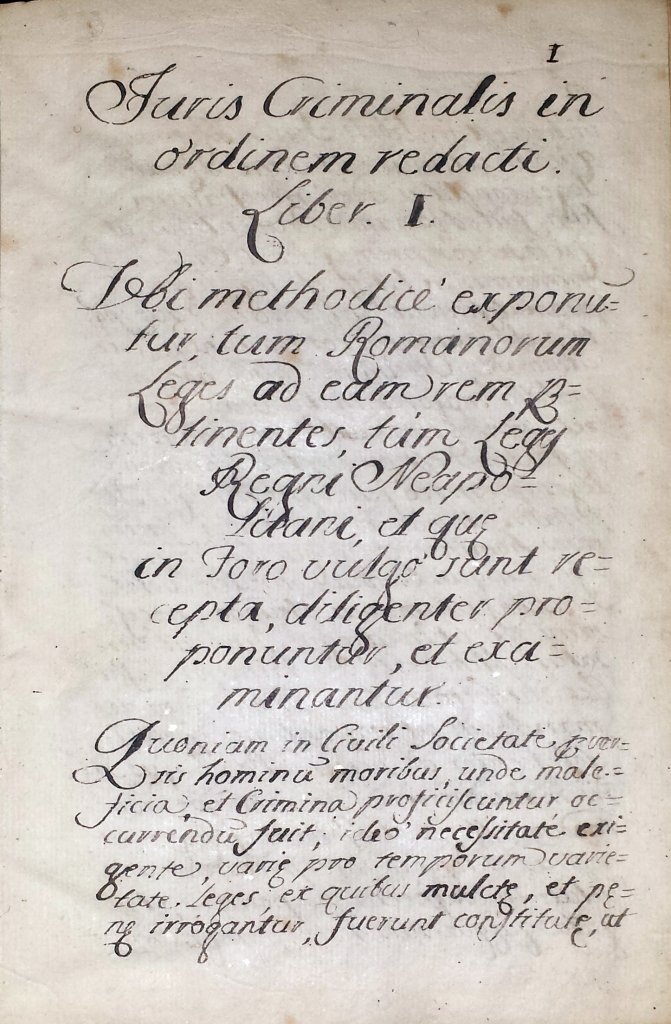 1
Juris Criminalis in
ordinem redacti.
Liber. I.
Ubi methodicè exponũ=
tur, tum Romanorum
Leges ad eam rem ꝑ=
tinentes, tùm Leges
Regni Neapo=
litani, et quę
in Foro vulgò sunt re=
cepta, diligenter pro=
ponuntur, et exa=
minantur.
Quoniam in Civili Societate ꝑver=
sis hominũ moribus, unde male=
ficia, et Crimina proficiscuntur oc=
currendũ fuit; ideò necessitate exi=
gente, varię pro temporum varie=
tate Leges, ex quibus mulctę, et pę=
nę irrogantur, fuerunt constitutę, ut